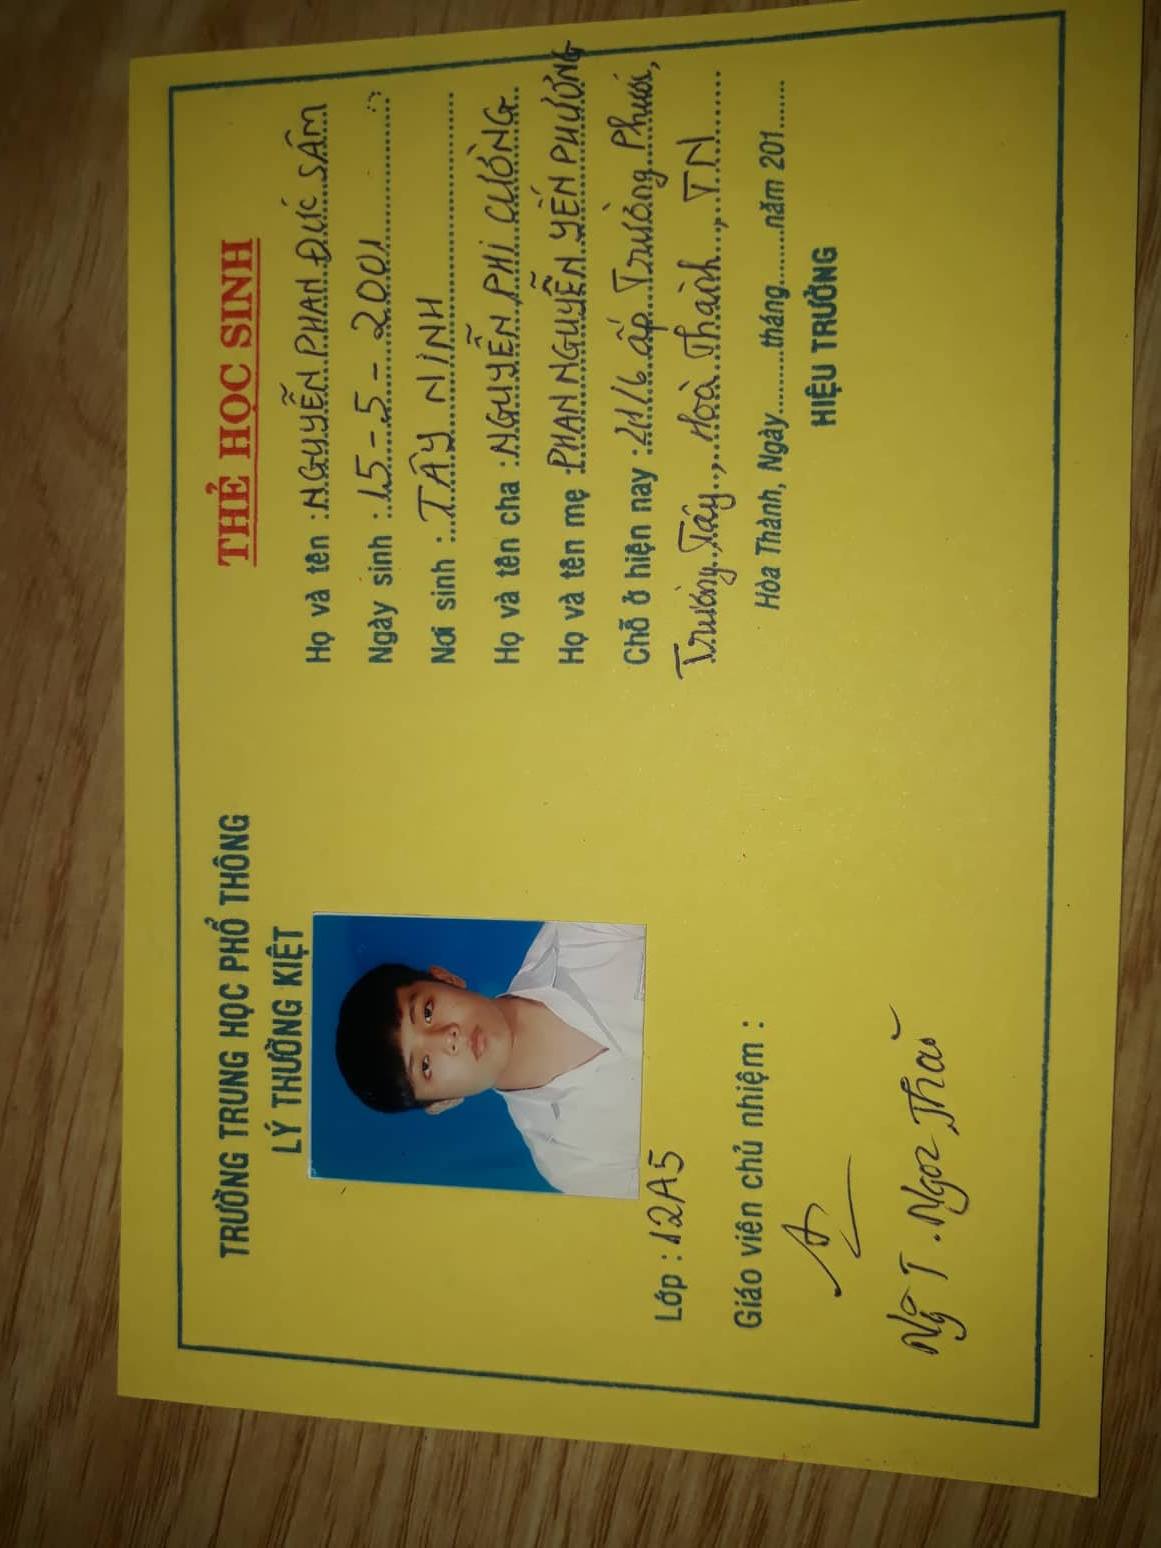 TRƯỜNG TRUNG HỌC PHỔ THÔNG
LÝ THƯỜNG KIỆT
Lớp : 12A5
Giáo viên chủ nhiệm :
Ng T. Ngọc Thảo
THẺ HỌC SINH
Họ và tên : NGUYỄN PHAN ĐỨC SÂM
Ngày sinh : 15-5-2001
Nơi sinh : TÂY NINH
Họ và tên cha : NGUYỄN PHI CƯỜNG
Họ và tên mẹ : PHAN NGUYỄN YẾN PHƯƠNG
Chỗ ở hiện nay : 21/6 ấp Trường Phước,
Trường Tây, Hoà Thành, TN
Hòa Thành, Ngày........tháng........năm 201......
HIỆU TRƯỞNG